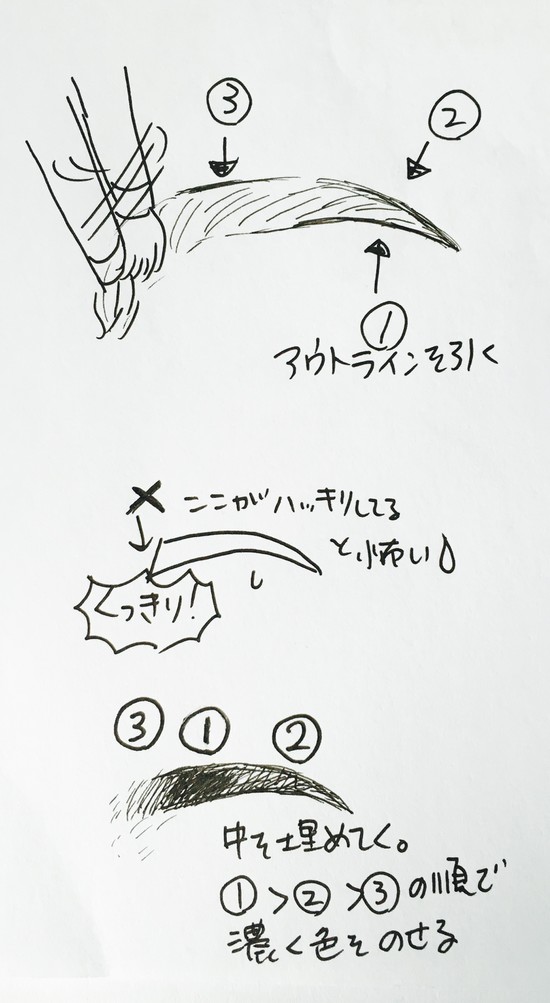 ③
②
①
アウトラインを引く
× ここがハッキリしてる
と怖い
くっきり!
③ ① ②
中を埋めてく。
①>②>③の順で
濃く色をのせる